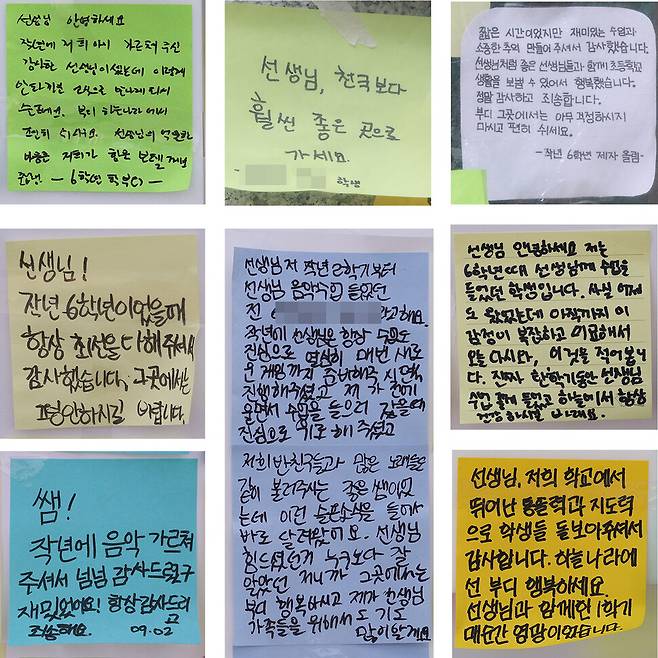 선생님 안녕하세요
작년에 저희 아이 가르쳐 주신
감사한 선생님이셨는데 이렇게
안타까운 소식으로 만나게 되서
슬퍼요. 부디 하늘나라에서
편히 쉬세요. 선생님의
마음은 저희가
- 6학년 학부모 -
선생님, 천국보다
훨씬 좋은 곳으로
가세요.
- 학생
짧은 시간이었지만 재미있는 수업과
소중한 추억 만들어 주셔서 감사했습니다.
선생님처럼 좋은 선생님들과 함께 초등학교
생활을 보낼 수 있어서 행복했습니다.
정말 감사하고 죄송합니다.
부디 그곳에서는 아무 걱정하시지
마시고 편히 쉬세요.
-작년 6학년 제자 올림-
선생님!
작년 6학년이었을때
항상 최선을 다해주셔서
감사했습니다; 그곳에서는
평안하시길 바랍니다.
선생님 저 작년 2학기부터
선생님 음악수업 들었던
전 6 라고해요.
작년에 선생님은 항상 수업도
진심으로 열심히 매번 새로
운 게임까지 준비해주시며
진행해주셨고 제가
울면서 수업을 들으러 갔을때
진심으로 기도해주셨고
저희 반친구들과 많은 노래들을
같이 불러주시는 좋은 쌤이었
는데 이런 슬픈소식을 들어서
바로 달려왔어요. 선생님
힘드셨던거 누구보다 잘
알았던 저니까 그곳에서는
부디 행복하시고 제가 선생님
가족들을 위해서도 기도
많이할게요
선생님 안녕하세요 저는
6학년때 선생님께 수업을
들었던 학생입니다. 사실 어제
도 왔었는데 아직까지 이
감정이 복잡하고 미묘해서
오늘 다시 와, 이것을 적어봅니
다. 진짜 한학기동안 선생님
수업 좋게 들었고 하늘에서 항상
건강하시길 바래요.
쌤!
작년에 음악 가르쳐
주셔서 넘넘 감사드리구
재밌었어요! 항상 감사드리
고
죄송해요. 09.02
선생님, 저희 학교에서
뛰어난 통솔력과 지도력
으로 학생들 돌보아주셔서
감사합니다. 하늘나라에
선 부디 행복하세요.
선생님과 함께한 1학기
매순간 영광이었습니다.